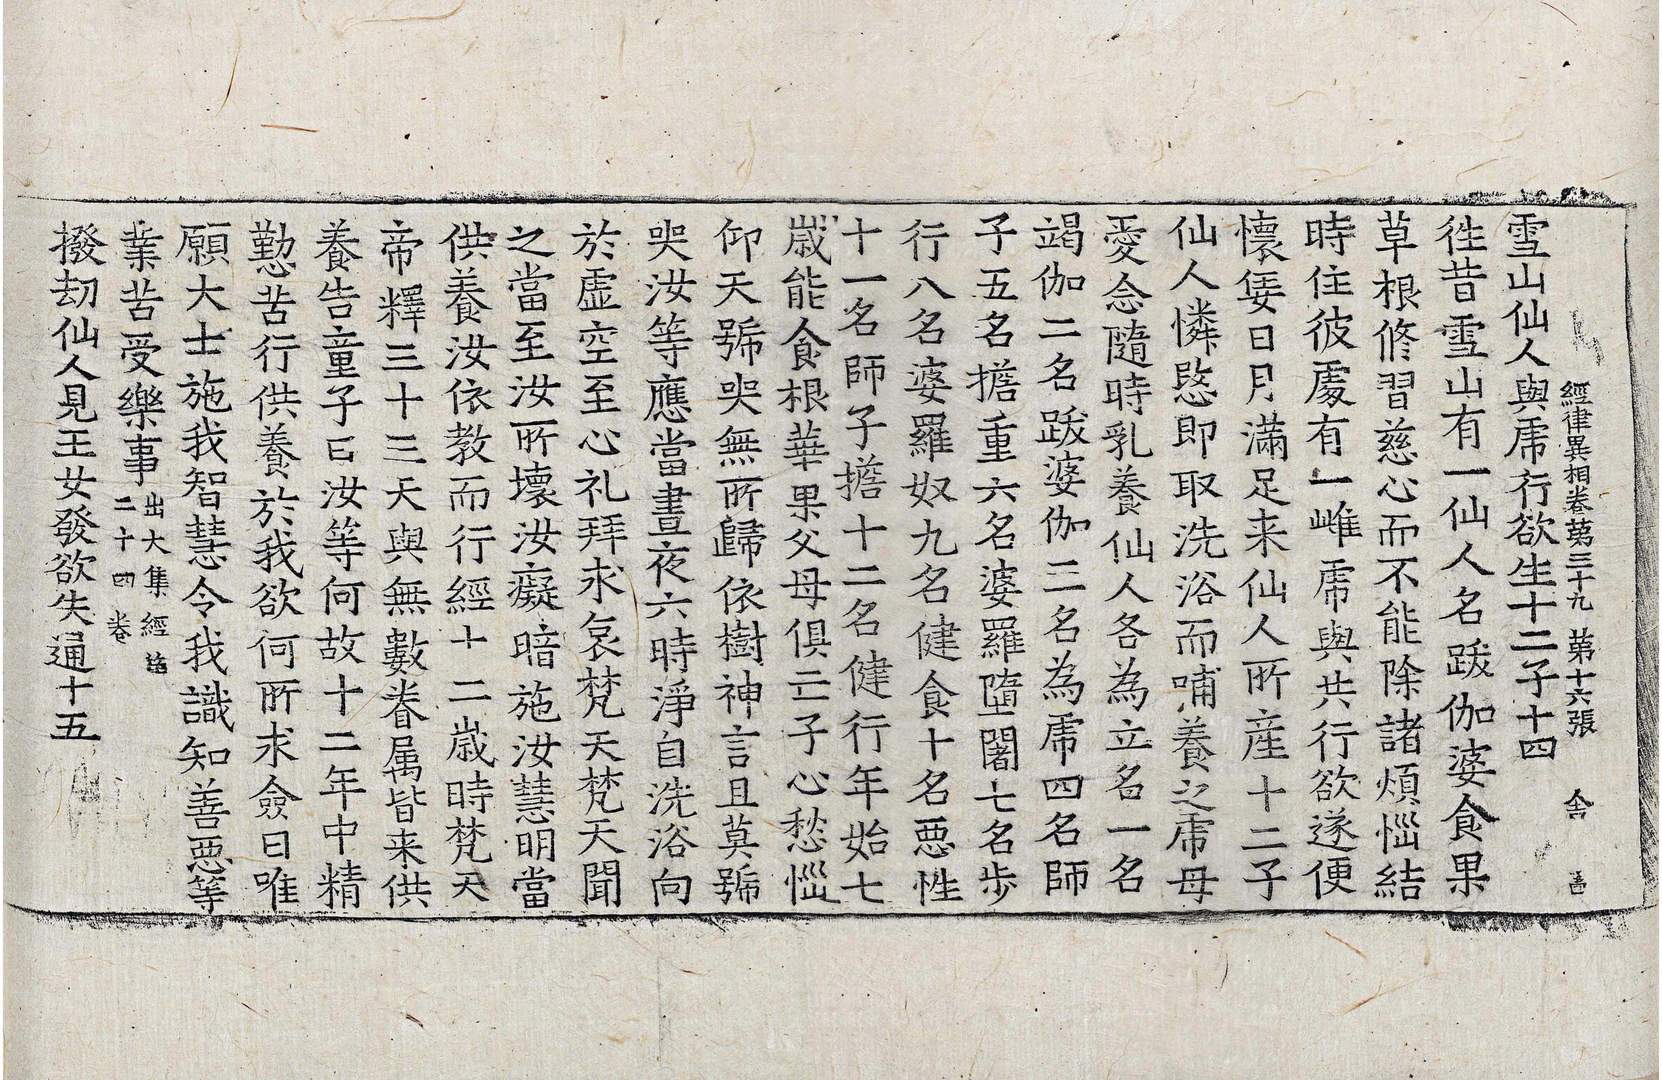 經律異相卷第三十九 第十六張 舍
雪山仙人與虎行欲生十二子十四
徃昔雪山有一仙人名跋伽婆食果
草根修習慈心而不能除諸煩惱結
時住彼處有一雌虎與共行欲遂便
懷妊日月滿足来仙人所產十二子
仙人憐愍即取洗浴而哺養之虎母
愛念隨時乳養仙人各為立名一名
竭伽二名跋婆伽三名為虎四名師
子五名擔重六名婆羅墮闍七名步
行八名婆羅奴九名健食十名惡性
十一名師子擔十二名健行年始七
歲能食根華果父母俱亡二子心愁惱
仰天號哭無所歸依樹神言且莫號
哭汝等應當晝夜六時淨自洗浴向
於虛空至心礼拜求哀梵天梵天聞
之當至汝所壞汝癡暗施汝慧明當
供養汝依教而行經十二歲時梵天
帝釋三十三天與無數眷属皆来供
養告童子曰汝等何故十二年中精
勤苦行供養於我欲何所求僉曰唯
願大士施我智慧令我識知善惡等
業苦受樂事出大集經
二十四卷
撥劫仙人見王女發欲失通十五